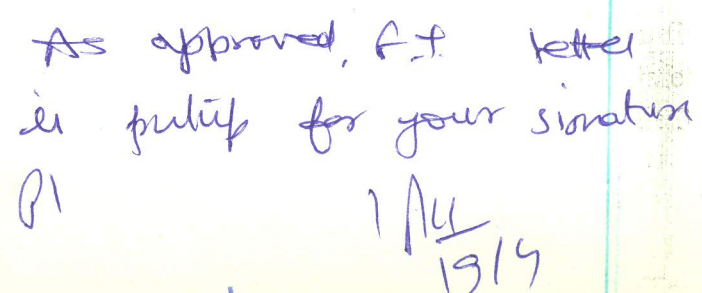 As approved, F.F. letter
is putup for your sionature
Pl
19/4